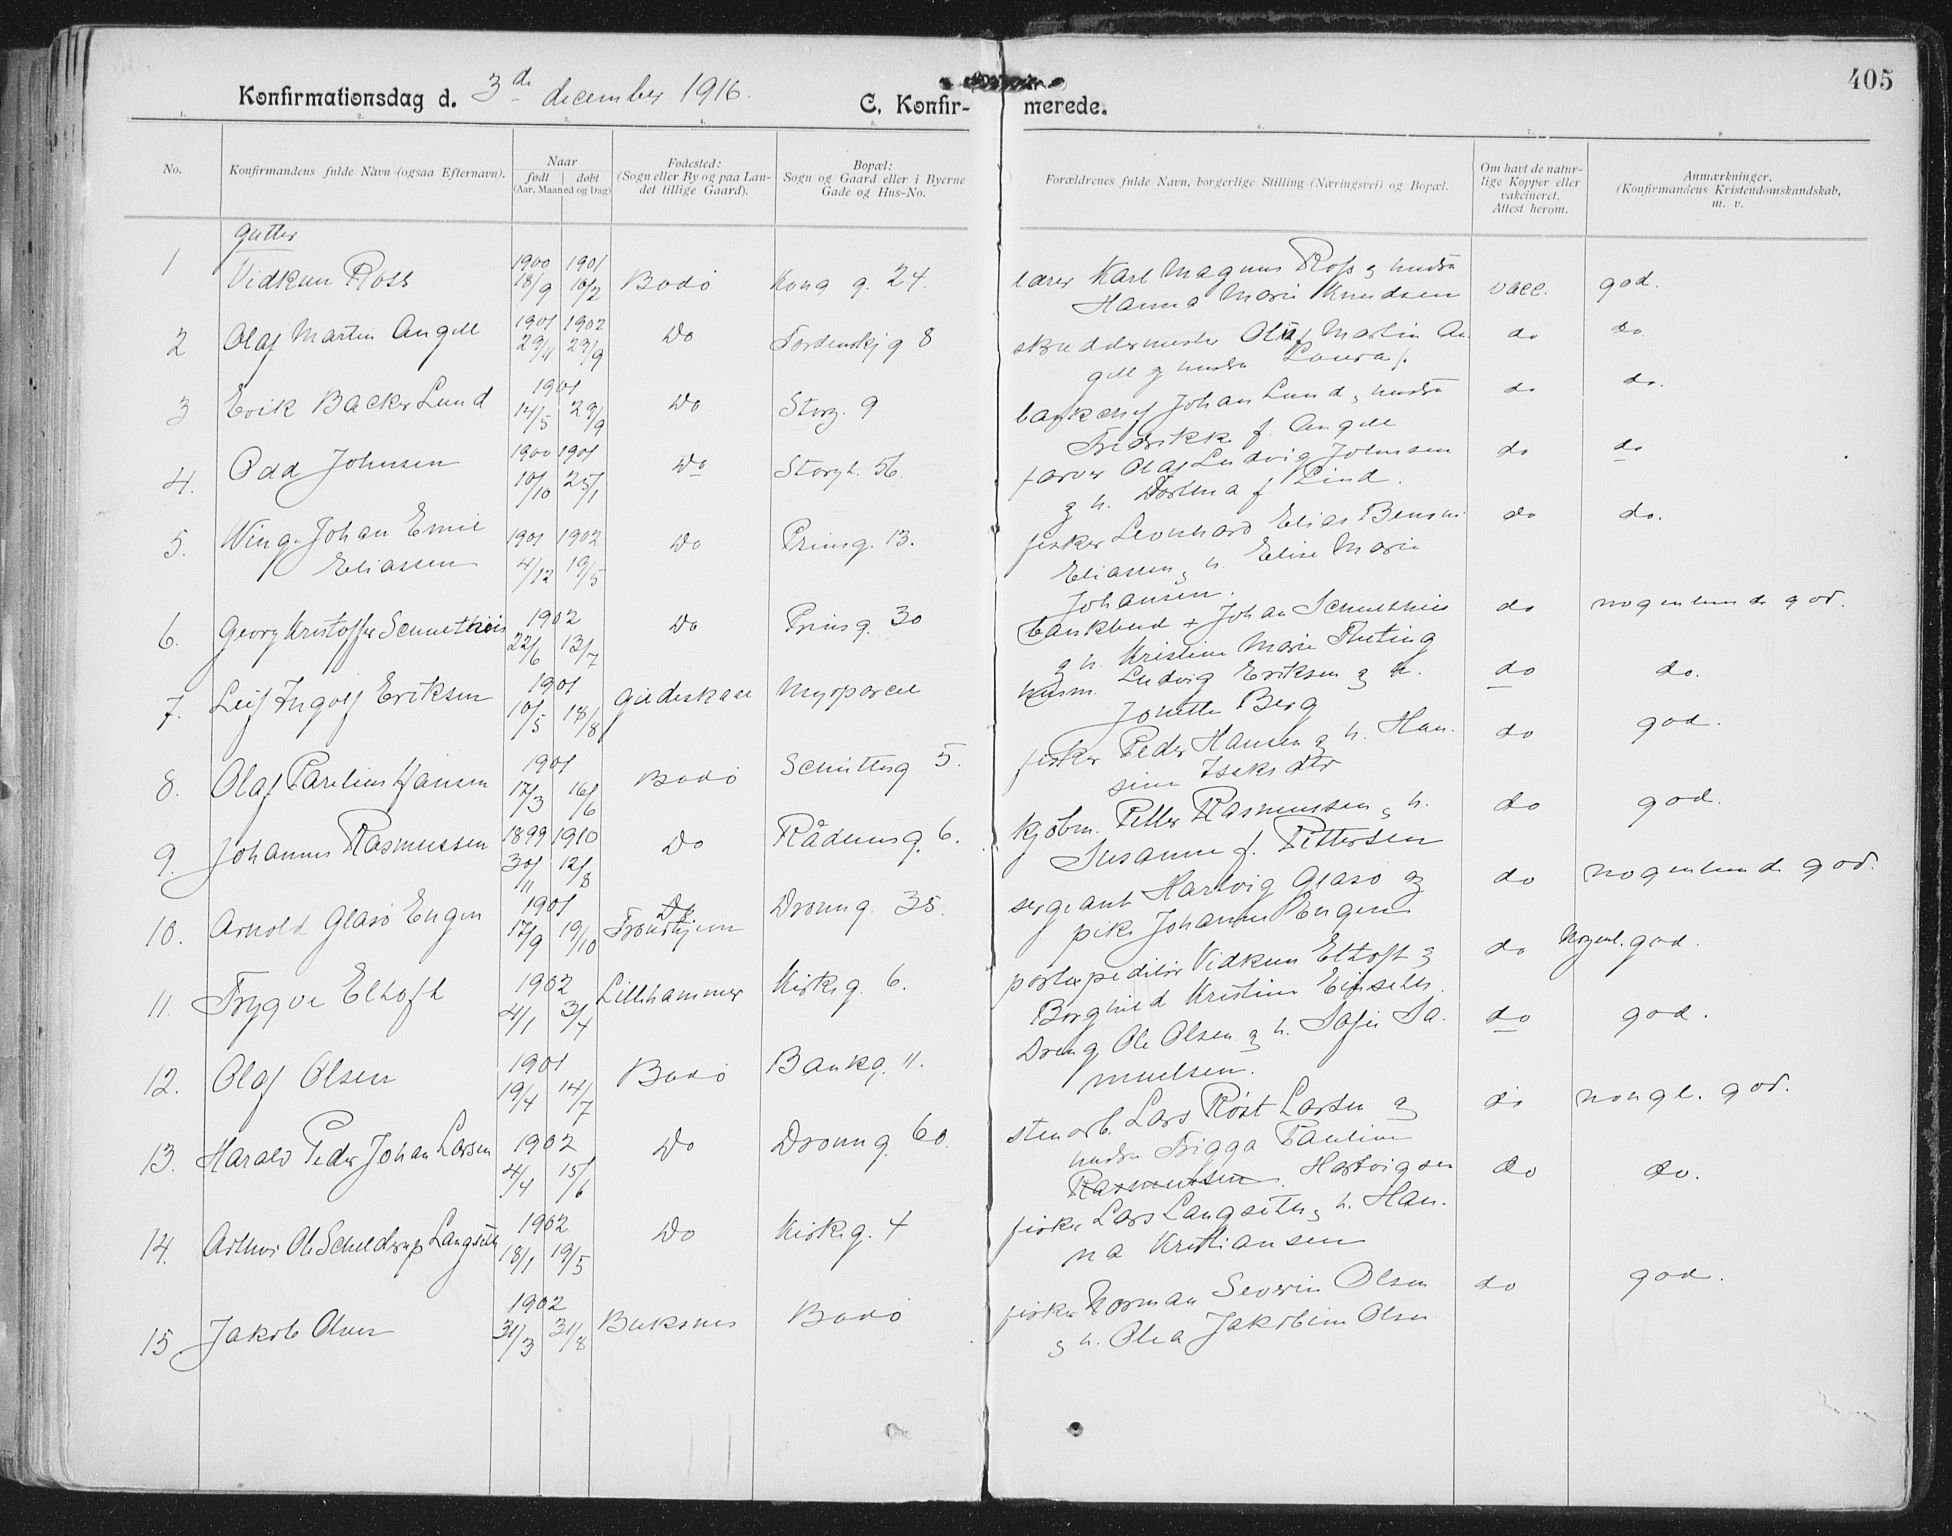 405
Konfirmationsdag d. 3de december 1916.
C. Konfir- merede.
1. 2. 3. 4. 5. 6. 7. 8
No. Konfirmandens fulde Navn (ogsaa Efternavn). Naar født | døbt (Aar, Maaned og Dag) Fødested: (Sogn eller By og paa Landet tillige Gaard). Bopæl: Sogn og Gaard eller i Byerne Gade og Hus-No. Forældrenes fulde Navn, borgerlige Stilling (Næringsvei) og Bopæl. Om havt de naturlige Kopper eller vakcineret. Attest herom. Anmærkninger. (Konfirmandens Kristendomskundskab, m. v.
Gutter
1 Vidkun Ross 1900 18/9 1901 10/2 Bodö Kong g. 24. lærer Karl Magnus Ross og hustru
Hanna Marie Knudsen vacc. god.
2 Olaf Martin Angell 1901 29/4 1902 29/9 Do Tordenskj g 8 skræddermester Oluf Martin An
gell og hustru Laura f. do do.
3 Erik Backer Lund 1901 14/5 29/9 Do Storg. 9 bankchef Johan Lund, hustru
Fredrikke f. Angell do do.
4. Odd Johnsen 1900 10/10 1901 25/1 Do Storg. 56. farver Olaf Ludvig Johnsen
g h. Dortea f. Lind. do do
5. Wing. Johan Emil
Eliassen 1901 4/12 1902 19/5 Do Prinsg. 13. fisker Leonhard Elias
Eliassen, h. Elise Marie
Johansen. do do.
6. Georg Kristoffer Schultheis 1902 22/6 13/7 Do Prinsg. 30 bankbud + Johan Schultheis
g h. Kristine Marie do nogenlunde god.
7. Leif Ingolf Eriksen 1901 10/5 18/8 Gildeskaal Myrporcel husm. Ludvig Eriksen g h.
Jonette Berg do do.
8. Olaf Parelius Hansen 1901 17/3 16/6 Bodö 5. fisker Peder Hansen g h. Han.
sine Isaksdtr do god.
9. Johannes Rasmussen 1899 30/11 1910 12/8 Do Rådhusg. 6. kjöbm. Petter Rasmussen, h.
Susanne f. Pettersen do god.
10. Arnold Glasö Engen 1901 17/9 19/10 Do Trondhjem Dronng. 35. sergeant Hartvig Glasö og
pike Johanne Engen do nogenlunde god.
11. Trygve Eltoft 1902 4/1 3/4 Lillehammer Kirkeg. 6. postexpeditör Vidkun Eltoft g
Borghild Kristine do Nogenl. god.
12. Olaf Olsen 1901 19/4 14/7 Bodö Bankg. 11. Dreng Ole Olsen g h. Sofie Sa.
muelsen. do god.
13. Harald Peder Johan Larsen 1902 4/4 15/6 Do Dronng. 60 stenarb. Lars Röst Larsen g
hustru Trigga Pauline
Rasmussen. Hartvigsen do nongl. god.
14. Arthur Ole Scheldrup Langseth 1902 18/1 19/5 Do Kirkeg. 4 fisker Lars Langseth, h. Han.
na Kristiansen do do.
15 Jakob Olsen 1902 31/3 31/8 Buksnes Bodö fisker Norman Severin Olsen
g h. Olea Jakobine Olsen do god.